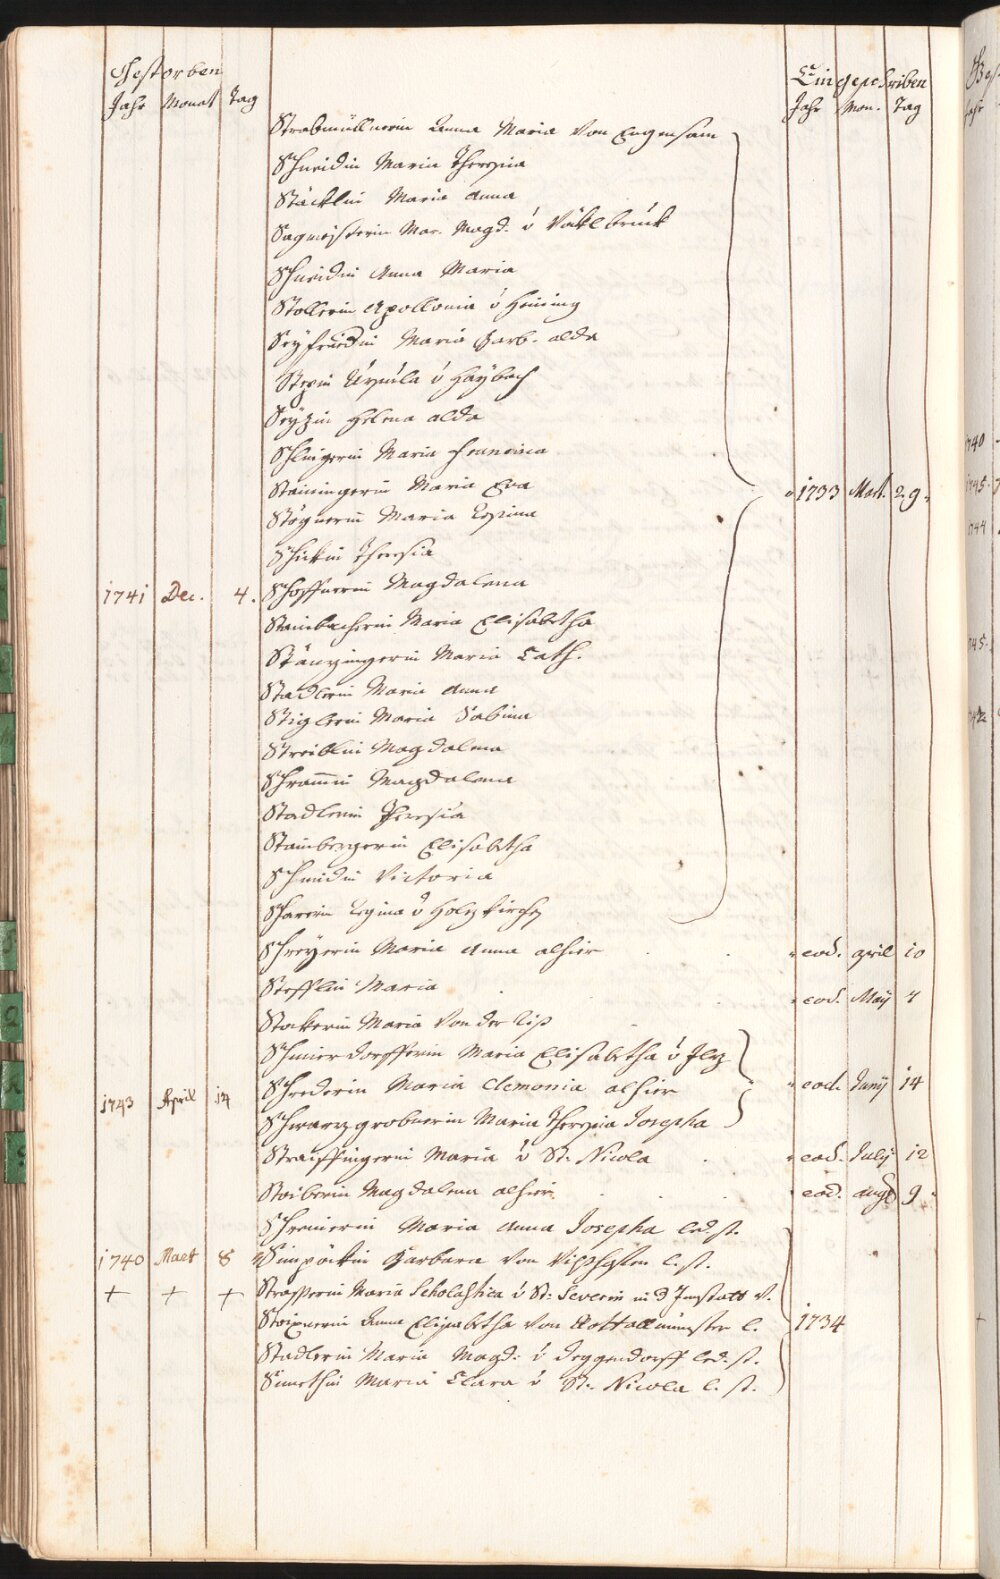 Gestorben Eingeschriben
Jahr Monat Tag Jahr Mon. Tag
Strabmüllnerin Anna Maria von Engensam
Schneidin Maria Theresia
Stäcklin Maria Anna
Sagmeisterin Mar. Magd. v Väklbruck
Schneidin Anna Maria
Stollerin Apollonia v
Seyfridin Maria Barb. alda
Ursula v Haybach
Helena alda
Maria Francisca
Stainingerin Maria Eva 1733 Mart. 29.
Stögnerin Maria Rosina
Schickin Theresia
1741 Dec. 4. Schoffnerin Magdalena
Stainbacherin Maria Elisabetha
Stänzingerin Maria Cath.
Stadlerin Maria Anna
Stiglerin Maria Sabina
Streiblin Magdalena
Schramin Magdalena
Stadlerin Theresia
Stainbergerin Elisabetha
Schmidin Victoria
Regina v Holzkirchen
Schreyerin Maria Anna alhier eod. April 10
Stefflin Maria eod. Maij 4
Stokerin Maria von der
Schmierdorfferin Maria Elisabetha v Ilz
1743 April 14 Schrederin Maria Clemonia alhier eod. Junij 14
Schwarzgrobnerin Maria Theresia Josepha
Maria v St. Nicola eod. Julij 12
Stoiberin Magdalena alhier eod. aug. 9.
Schreinerin Maria Anna Josepha led. st.
1740 Mart 8 Simpöckin Barbara von Vilshofen l. st.
+ + + Strasserin Maria Scholastica v St. Severin in d Innstatt v.
Anna Elisabetha von Rottallmünster l. 1734
Stadlerin Maria Magd. v Deggendorff led. st.
Simethin Maria Clara v St. Nicola l. st.
1740
1745
1744
1745